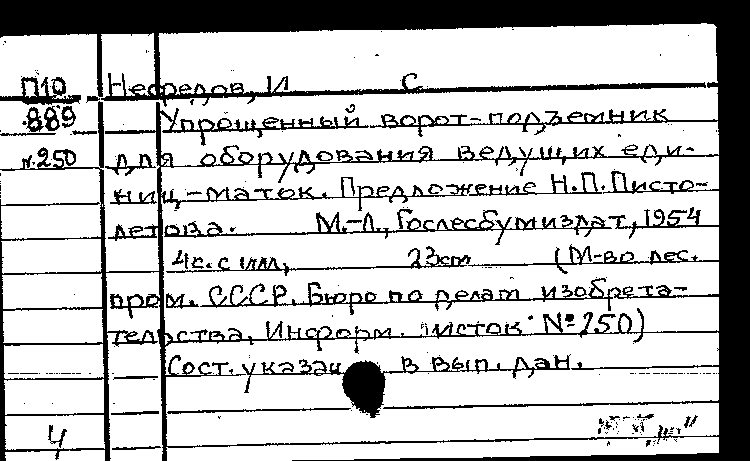 П10 Нефедов, И С
889 Упрощенный ворот-подъемник
№250 для оборудования ведущих еди-
ниц-маток. Предложение Н.П.Писто-
летова. М.-Л., Гослесбумиздат, 1954
4с. с илл, 23см (М-во лес.
пром. СССР. Бюро по делам изобрета-
тельства, Информ. листок №250)
Сост. указан в вып. дан.
4